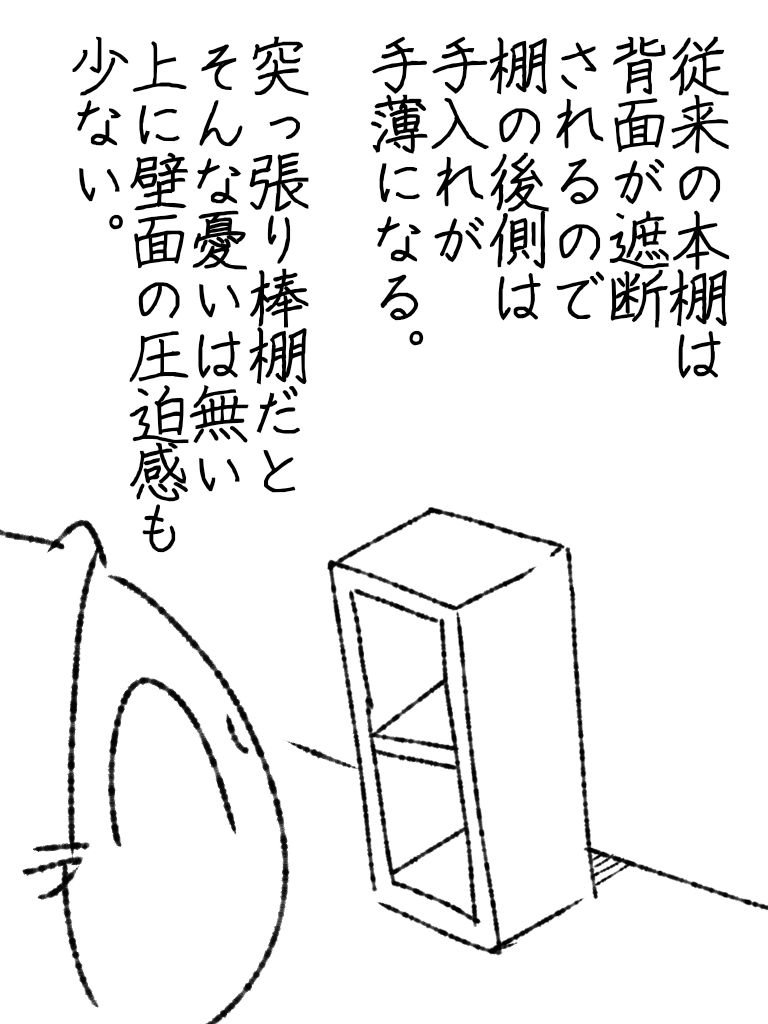 従来の本棚は
背面が遮断
されるので
棚の後側は
手入れが
手薄になる。
突っ張り棒棚だと
そんな憂いは無い
上に壁面の圧迫感も
少ない。